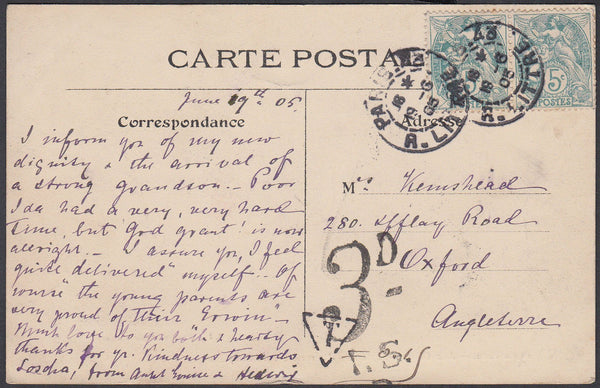 CARTE POSTALE
June 19th 05.
Correspondance
Adresse
I inform you of my new
dignity & the arrival of
a strong grandson.– Poor
Ida had a very, very hard
time, but God grant! is now
allright.– I assure you, I feel
quite "delivered" myself.– Of
course the young parents are
very proud of their Erwin –
Much love to you both & hearty
thanks for yr. kindness towards
from Aunt & Hedwig
Mrs Kemshead
280. Iffley Road
Oxford
Angleterre
5c
POSTES
PARIS
R. LITTRE
3D
T.